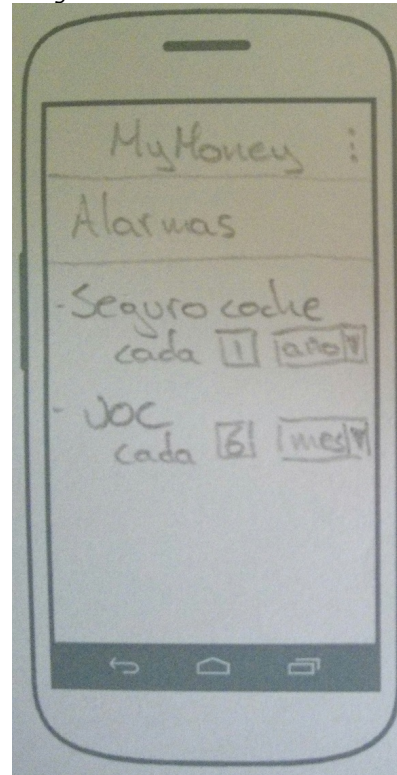 MyMoney
Alarmas
- Seguro coche
cada 1 año
- UOC
cada 6 mes